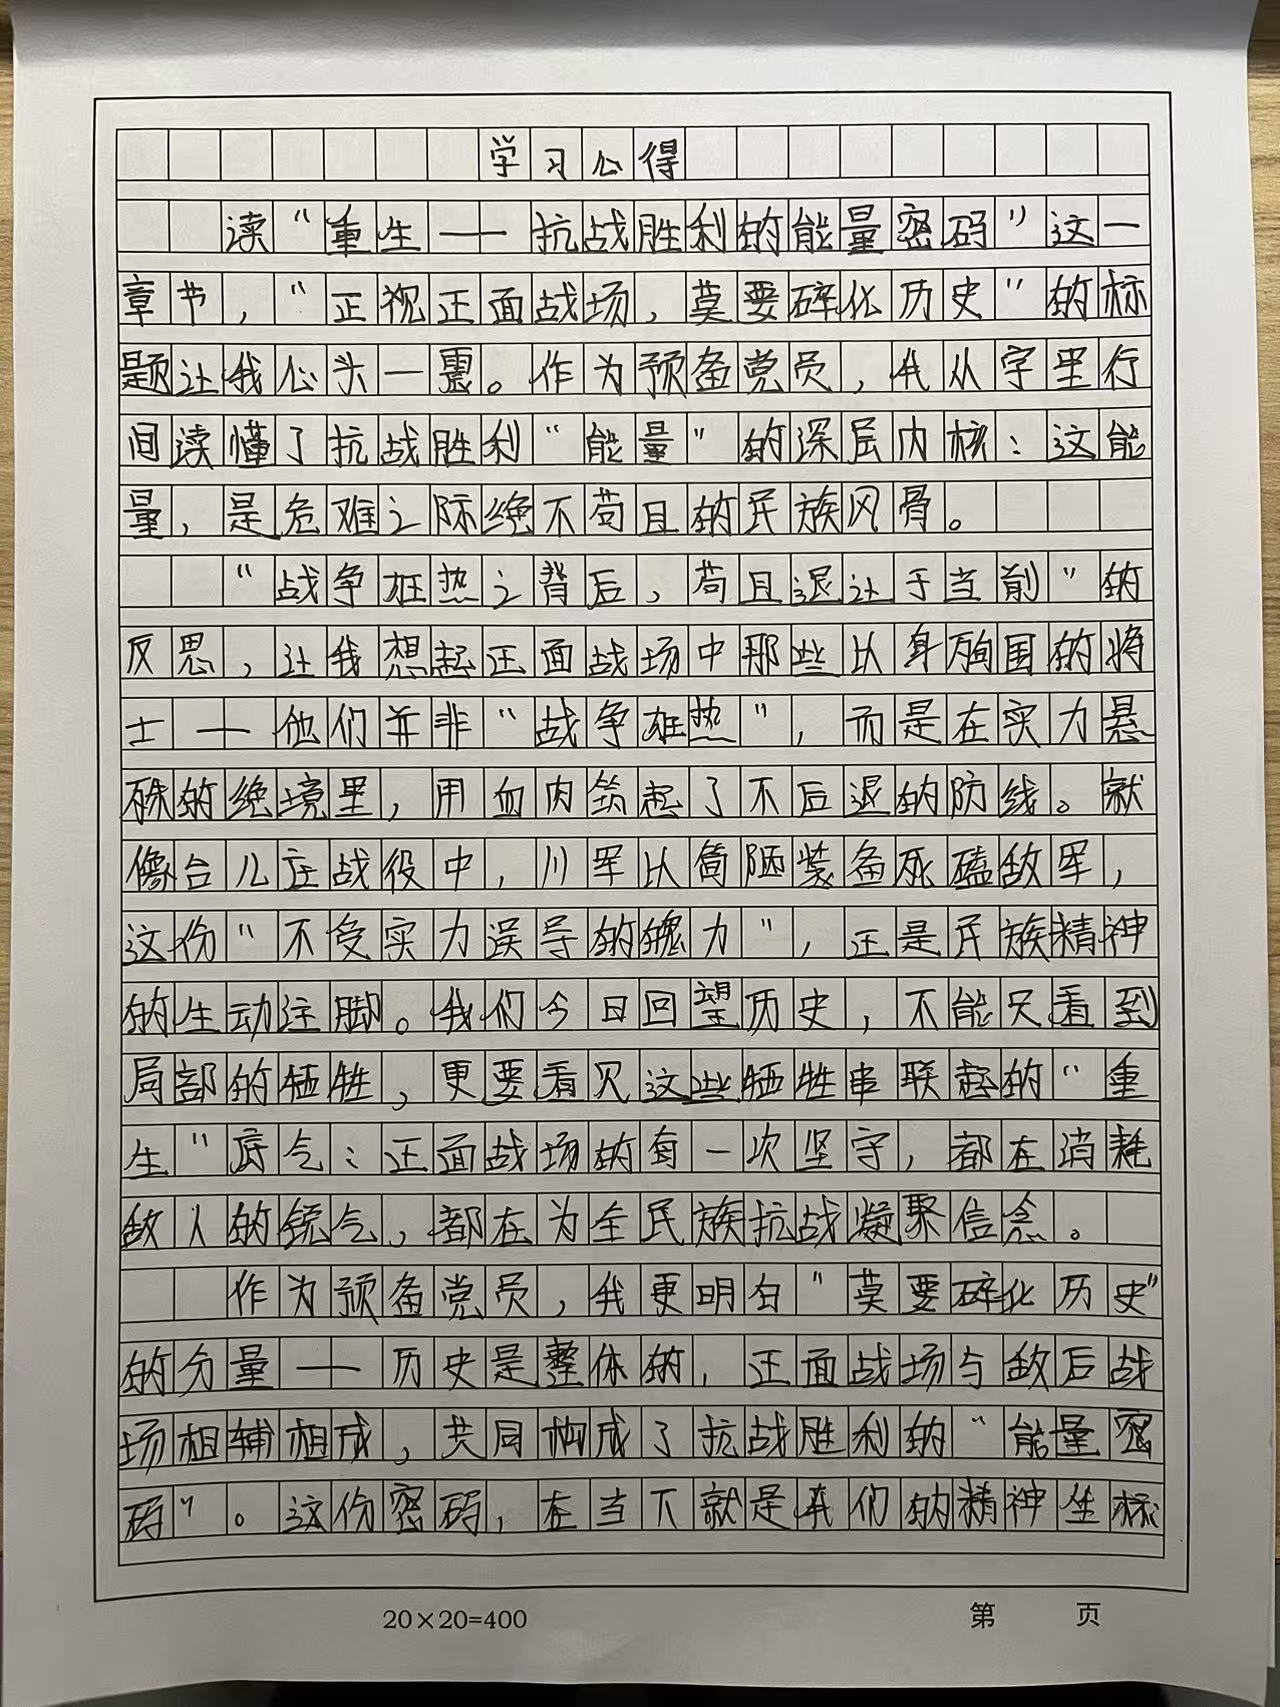 学习心得
读“重生——抗战胜利的能量密码”这一
章节，“正视正面战场，莫要碎化历史”的标
题让我心头一震。作为预备党员，我从字里行
间读懂了抗战胜利“能量”的深层内核：这能
量，是危难之际绝不苟且的民族风骨。
“战争狂热之背后，苟且退让于当前”的
反思，让我想起正面战场中那些以身殉国的将
士——他们并非“战争狂热”，而是在实力悬
殊的绝境里，用血肉筑起了不后退的防线。就
像台儿庄战役中，川军以简陋装备死磕敌军，
这份“不受实力误导的魄力”，正是民族精神
的生动注脚。我们今日回望历史，不能只看到
局部的牺牲，更要看见这些牺牲串联起的“重
生”底气：正面战场的每一次坚守，都在消耗
敌人的锐气，都在为全民族抗战凝聚信念。
作为预备党员，我更明白“莫要碎化历史”
的分量——历史是整体的，正面战场与敌后战
场相辅相成，共同构成了抗战胜利的“能量密
码”。这份密码，在当下就是我们的精神坐标
20×20=400
第 页